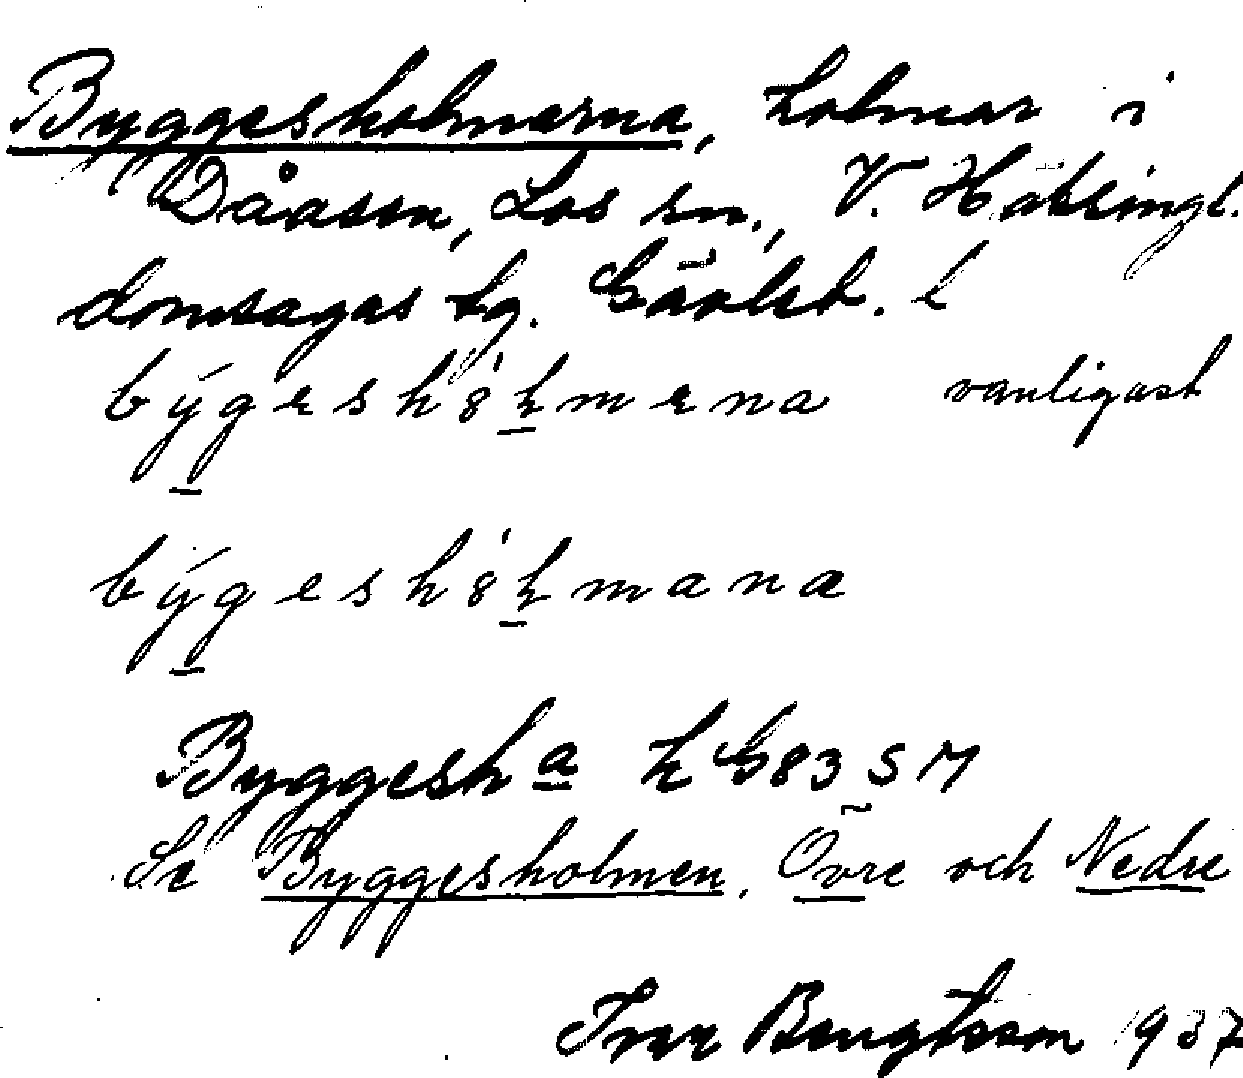 Byggesholmarna, holmar i
Dåasen, Los sn., V. Hälsingl.
domsagas tg. Gävleb. l
býgeshó̀ḷmerna vanligast
býgeshó̀ḷmana
Byggesh a k G83 S M
Se Byggesholmen, Övre och Nedre
Ivar Bengtsson 1937